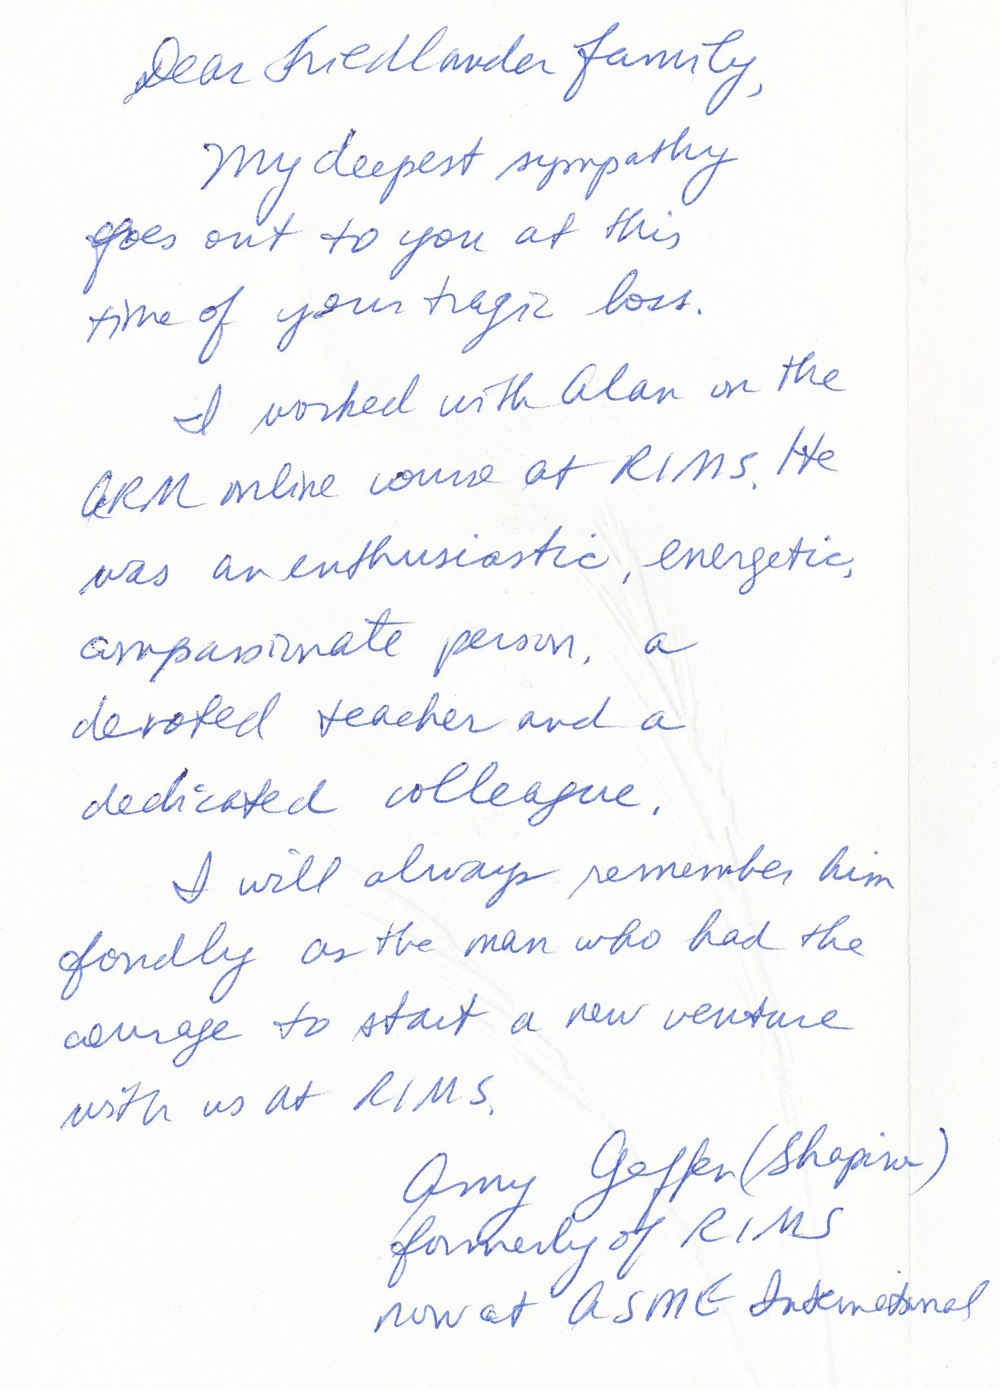 Dear Friedlander family,
My deepest sympathy
goes out to you at this
time of your tragic loss.
I worked with Alan on the
ARM online course at RIMS. He
was an enthusiastic, energetic,
compassionate person, a
devoted teacher and a
dedicated colleague.
I will always remember him
fondly as the man who had the
courage to start a new venture
with us at RIMS.
Amy Geffen (Shapiro)
formerly of RIMS
now at ASME International